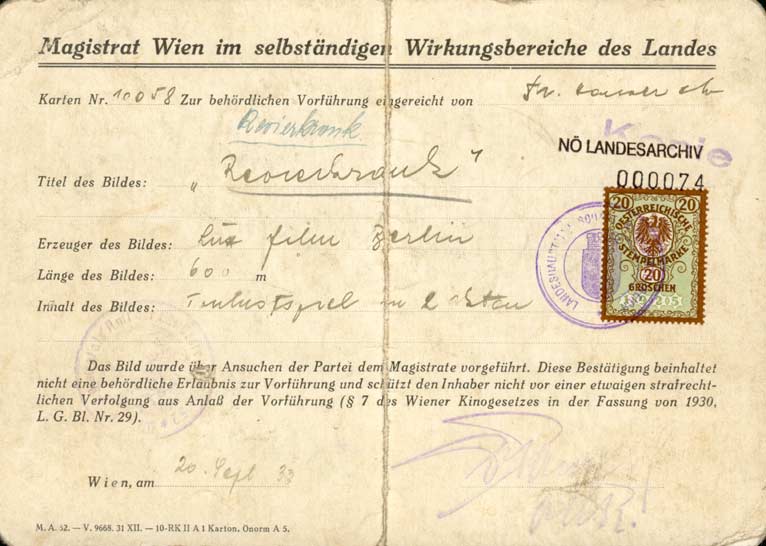 Magistrat Wien im selbständigen Wirkungsbereiche des Landes
Karten Nr. 10058 Zur behördlichen Vorführung eingereicht von
Revierkrank.
Kopie
NÖ LANDESARCHIV
000074
Titel des Bildes: „Revierkrank"
Erzeuger des Bildes: Lux film Berlin
Länge des Bildes: 600 m
Inhalt des Bildes: Tonlustspiel in 2 Akten
20 20
OESTERREICHISCHE
STEMPELMARKE
20
GROSCHEN
Das Bild wurde über Ansuchen der Partei dem Magistrate vorgeführt. Diese Bestätigung beinhaltet
nicht eine behördliche Erlaubnis zur Vorführung und schützt den Inhaber nicht vor einer etwaigen strafrecht-
lichen Verfolgung aus Anlaß der Vorführung (§ 7 des Wiener Kinogesetzes in der Fassung von 1930,
L. G. Bl. Nr. 29).
Wien, am 20. Sept 33
M. A. 52. — V. 9668. 31 XII. — 10-RK II A 1 Karton. Onorm A 5.